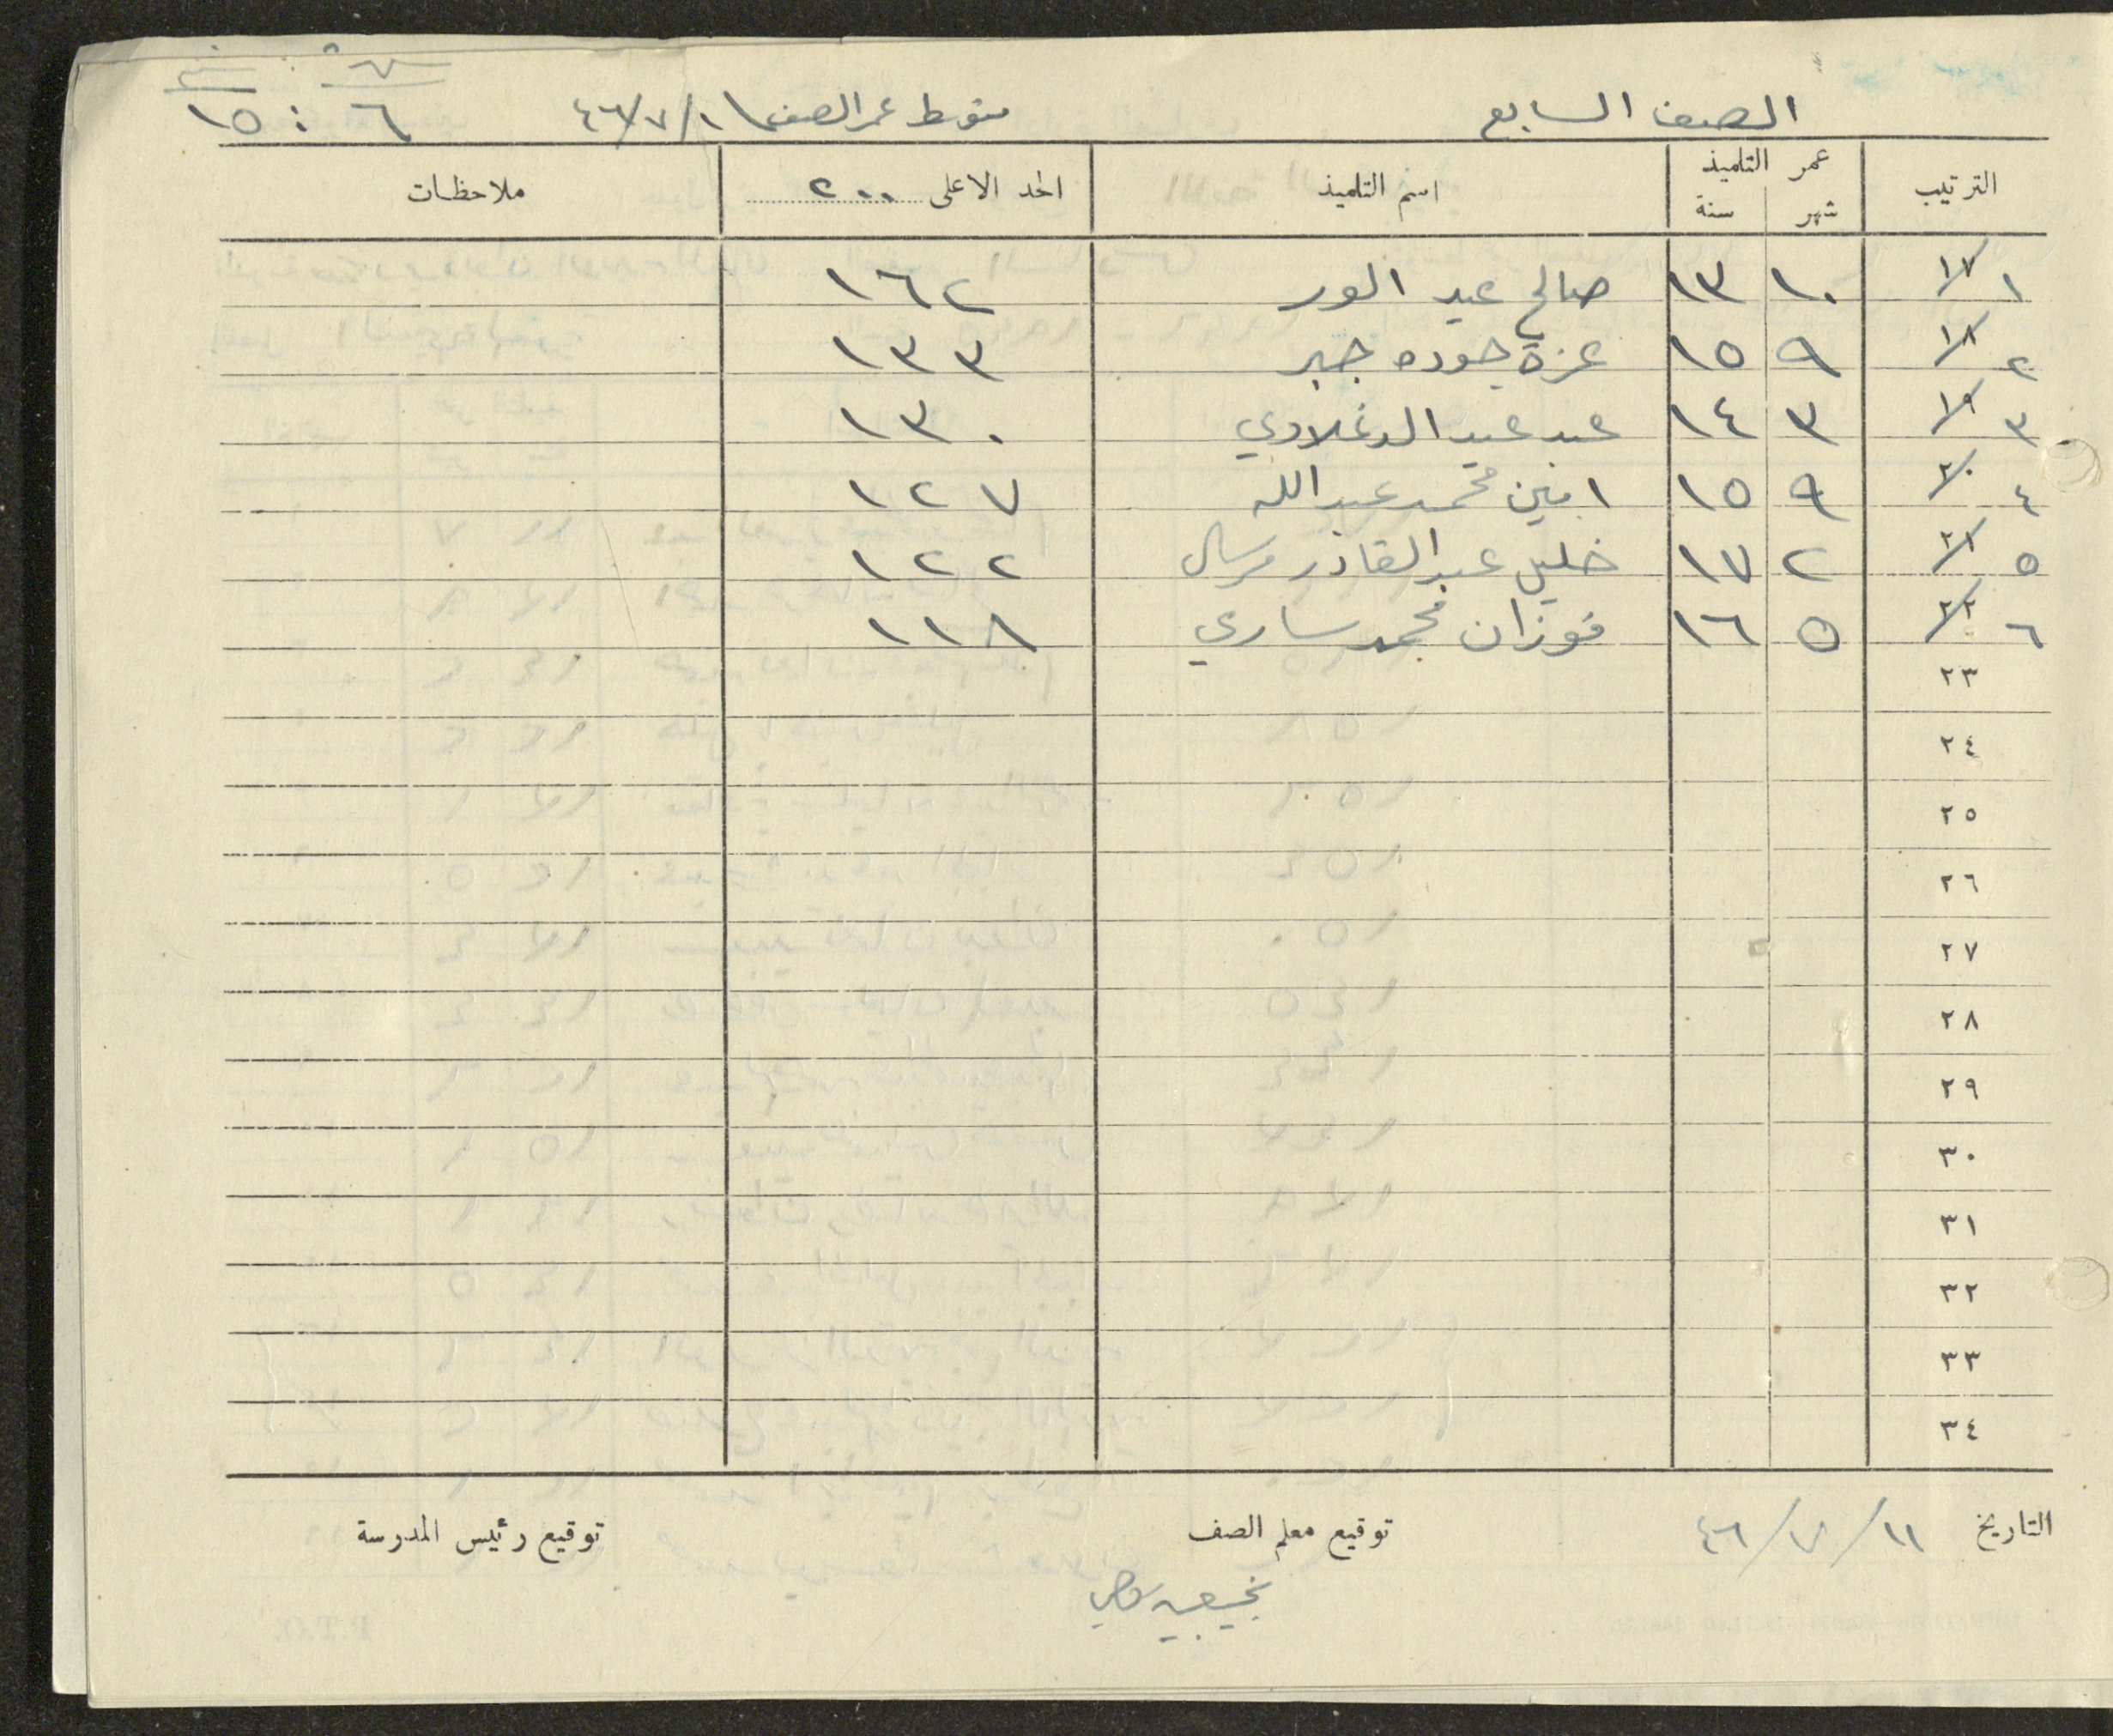 شهر : سنة
الصف السابع متوسط عمر الصف ١/٧/٤٦ ٦ : ١٥
الترتيب عمر التلميذ اسم التلميذ الحد الاعلى ٢٠٠ ملاحظات
شهر سنة
١ ١٧ ١٠ ١٣ صالح عيد الور ١٦٢
٢ ١٨ ٩ ١٥ عزة جوده جبر ١٣٣
٣ ١٩ ٣ ١٤ عبد عيد الدغلاوي ١٣٠
٤ ٢٠ ٩ ١٥ امين محمد عبد الله ١٢٧
٥ ٢١ ٢ ١٧ خليل عبد القادر مرسال ١٢٢
٦ ٢٢ ٥ ١٦ فوزان محمد ساري ١١٨
٢٣
٢٤
٢٥
٢٦
٢٧
٢٨
٢٩
٣٠
٣١
٣٢
٣٣
٣٤
التاريخ ١١/٧/٤٦ توقيع معلم الصف توقيع رئيس المدرسة